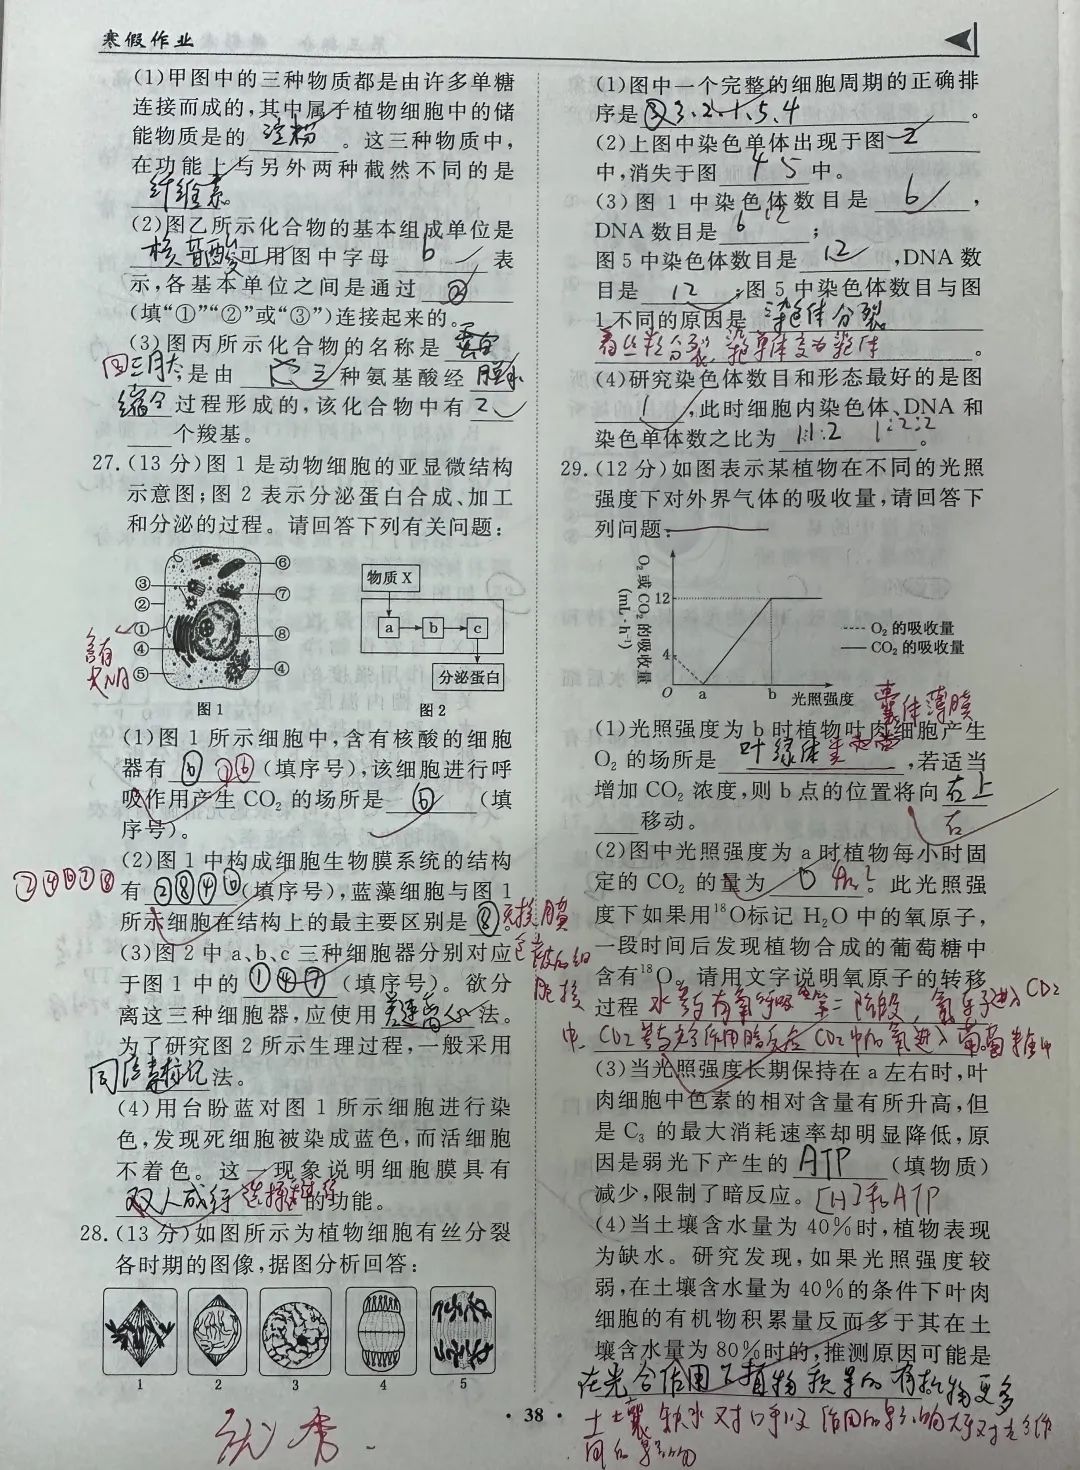 寒假作业
(1)甲图中的三种物质都是由许多单糖
连接而成的,其中属于植物细胞中的储
能物质是的 淀粉 。这三种物质中,
在功能上与另外两种截然不同的是
纤维素。
(2)图乙所示化合物的基本组成单位是
核苷酸 可用图中字母 b 表
示,各基本单位之间是通过 ②
(填“①”“②”或“③”)连接起来的。
(3)图丙所示化合物的名称是
;是由 三 种氨基酸经 脱水
缩合 过程形成的,该化合物中有 2
个羧基。
27.(13分)图1是动物细胞的亚显微结构
示意图;图2表示分泌蛋白合成、加工
和分泌的过程。请回答下列有关问题:
③ ② ① ④ ⑤ ⑥ ⑦ ⑧ ④
含有
物质X
a b c
分泌蛋白
图1 图2
(1)图1所示细胞中,含有核酸的细胞
器有 ⑥ ①⑥ (填序号),该细胞进行呼
吸作用产生CO₂的场所是 ⑥ (填
序号)。
(2)图1中构成细胞生物膜系统的结构
有 ②⑧④⑥ (填序号),蓝藻细胞与图1
所示细胞在结构上的最主要区别是 ⑧。
无核膜
包被的细
胞核
(3)图2中a、b、c三种细胞器分别对应
于图1中的 ①④⑦ (填序号)。欲分
离这三种细胞器,应使用 差速离心 法。
为了研究图2所示生理过程,一般采用
同位素标记 法。
(4)用台盼蓝对图1所示细胞进行染
色,发现死细胞被染成蓝色,而活细胞
不着色。这一现象说明细胞膜具有
选择透过性 的功能。
28.(13分)如图所示为植物细胞有丝分裂
各时期的图像,据图分析回答:
1 2 3 4 5
优秀
(1)图中一个完整的细胞周期的正确排
序是 3、2、1、5、4 。
(2)上图中染色单体出现于图 2
中,消失于图 4 5 中。
(3)图1中染色体数目是 6 ,
DNA数目是 6 12 ;
图5中染色体数目是 12 ,DNA数
目是 12 ;图5中染色体数目与图
1不同的原因是 染色体分裂
着丝粒分裂,染色单体变为染色体 。
(4)研究染色体数目和形态最好的是图
1 ,此时细胞内染色体、DNA和
染色单体数之比为 1:1:2 1:2:2 。
29.(12分)如图表示某植物在不同的光照
强度下对外界气体的吸收量,请回答下
列问题:
O₂或CO₂的吸收量
(mL·h⁻¹)
12
4
O a b 光照强度
---- O₂的吸收量
—— CO₂的吸收量
囊体薄膜
(1)光照强度为b时植物叶肉细胞产生
O₂的场所是 叶绿体 ,若适当
增加CO₂浓度,则b点的位置将向 右上
移动。
右
(2)图中光照强度为a时植物每小时固
定的CO₂的量为 0 4 。此光照强
度下如果用¹⁸O标记H₂O中的氧原子,
一段时间后发现植物合成的葡萄糖中
含有¹⁸O。请用文字说明氧原子的转移
过程 水参与有氧呼吸第二阶段,氧原子进入CO2
中,CO2参与光合作用暗反应 CO2中的氧进入葡萄糖中
(3)当光照强度长期保持在a左右时,叶
肉细胞中色素的相对含量有所升高,但
是C₃的最大消耗速率却明显降低,原
因是弱光下产生的 ATP (填物质)
减少,限制了暗反应。 [H]和ATP
(4)当土壤含水量为40%时,植物表现
为缺水。研究发现,如果光照强度较
弱,在土壤含水量为40%的条件下叶肉
细胞的有机物积累量反而多于其在土
壤含水量为80%时的,推测原因可能是
在光合作用下植物积累的有机物更多
土壤缺水对呼吸作用的影响大于对光合作
用的影响
• 38 •